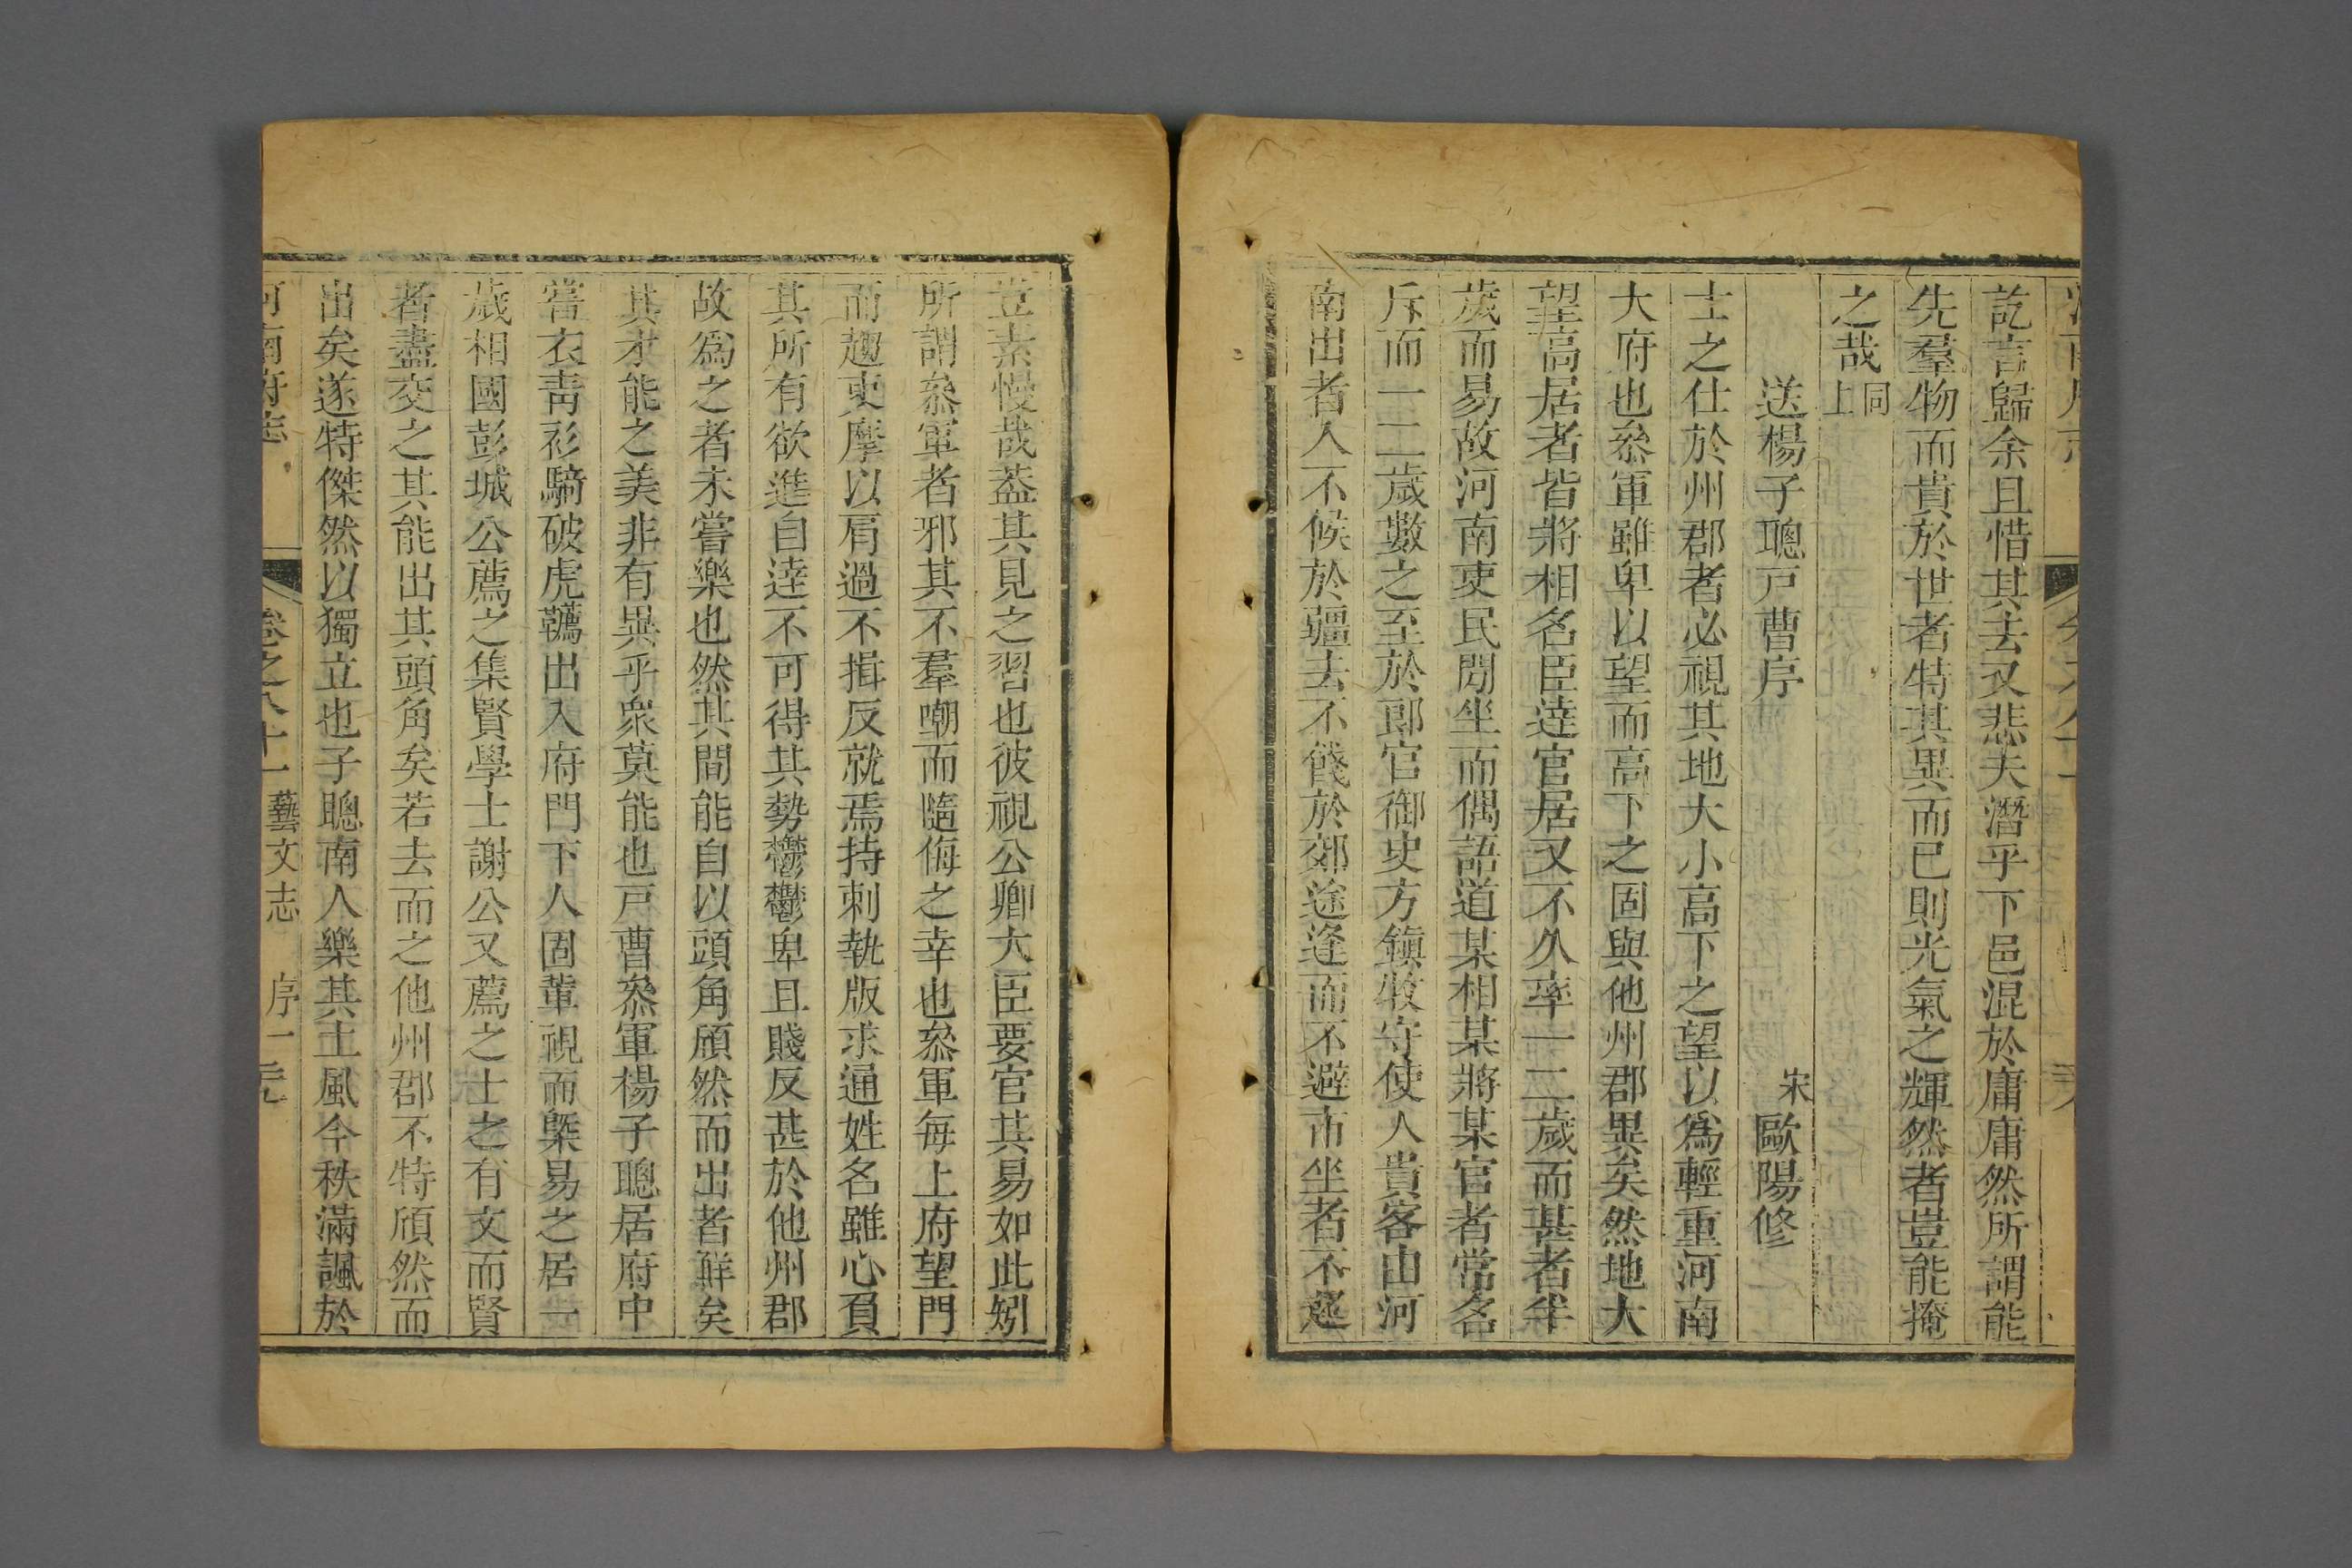 訖言歸余且惜其去又悲夫潛乎下邑混於庸庸然所謂能
先羣物而貴於世者特其異而已則光氣之輝然者豈能掩
之哉同上
送楊子聰戸曹序
宋歐陽修
士之仕於州郡者必視其地大小高下之望以爲輕重河南
大府也叅軍雖卑以望而高下之固與他州郡異矣然地大
望高居者皆將相名臣達官居又不久率一二歲而甚者半
歲而易故河南吏民閒坐而偶語道某相某將某官者常名
斥而一二歲數之至於郎官御史方鎮牧守使人貴客由河
南出者入不候於疆去不餞於郊途逢而不避市坐者不起
豈素慢哉葢其見之習也彼視公卿大臣要官其易如此矧
所謂叅軍者邪其不羣嘲而隨侮之幸也叅軍每上府望門
而趨吏摩以肩過不揖反就焉持刺執版求通姓名雖心負
其所有欲進自達不可得其勢鬱鬱卑且賤反甚於他州郡
故爲之者未嘗樂也然其間能自以頭角頎然而出者鮮矣
其才能之美非有異乎衆莫能也戸曹叅軍楊子聰居府中
嘗衣靑衫騎破虎韉出入府門下人固輩視而槩易之居一
歲相國彭城公薦之集賢學士謝公又薦之士之有文而賢
者盡交之其能出其頭角矣若去而之他州郡不特頎然而
出矣遂特傑然以獨立也子聰南人樂其土風今秩滿諷於
河南府志 卷之八十一藝文志 序一